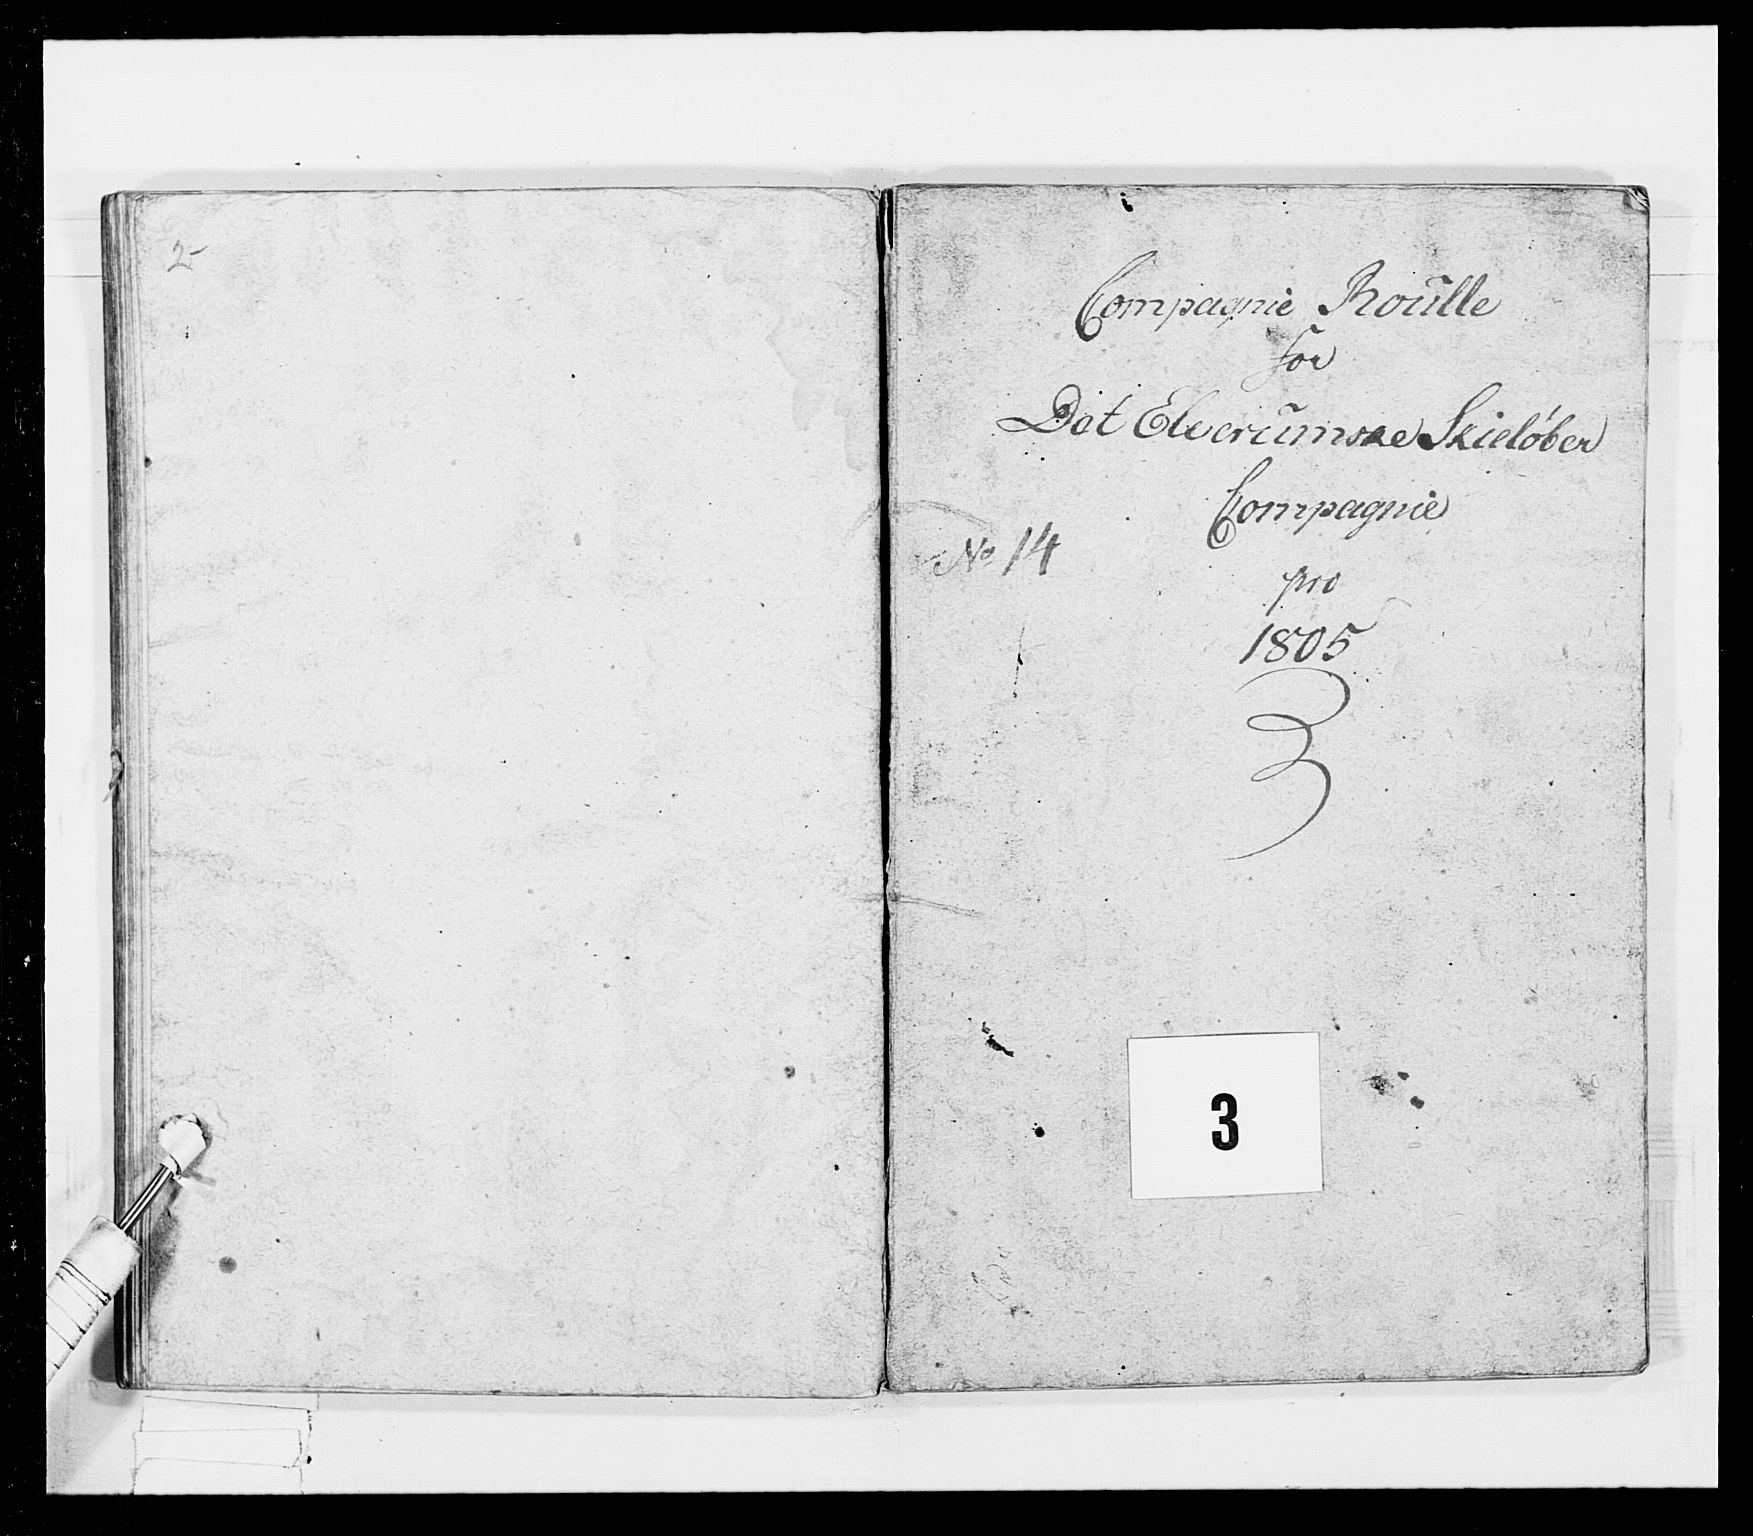 2
Compagnie Roŭlle
for
Det Elverŭmske Skieløber
Compagnie
No 14
pro
1805
3